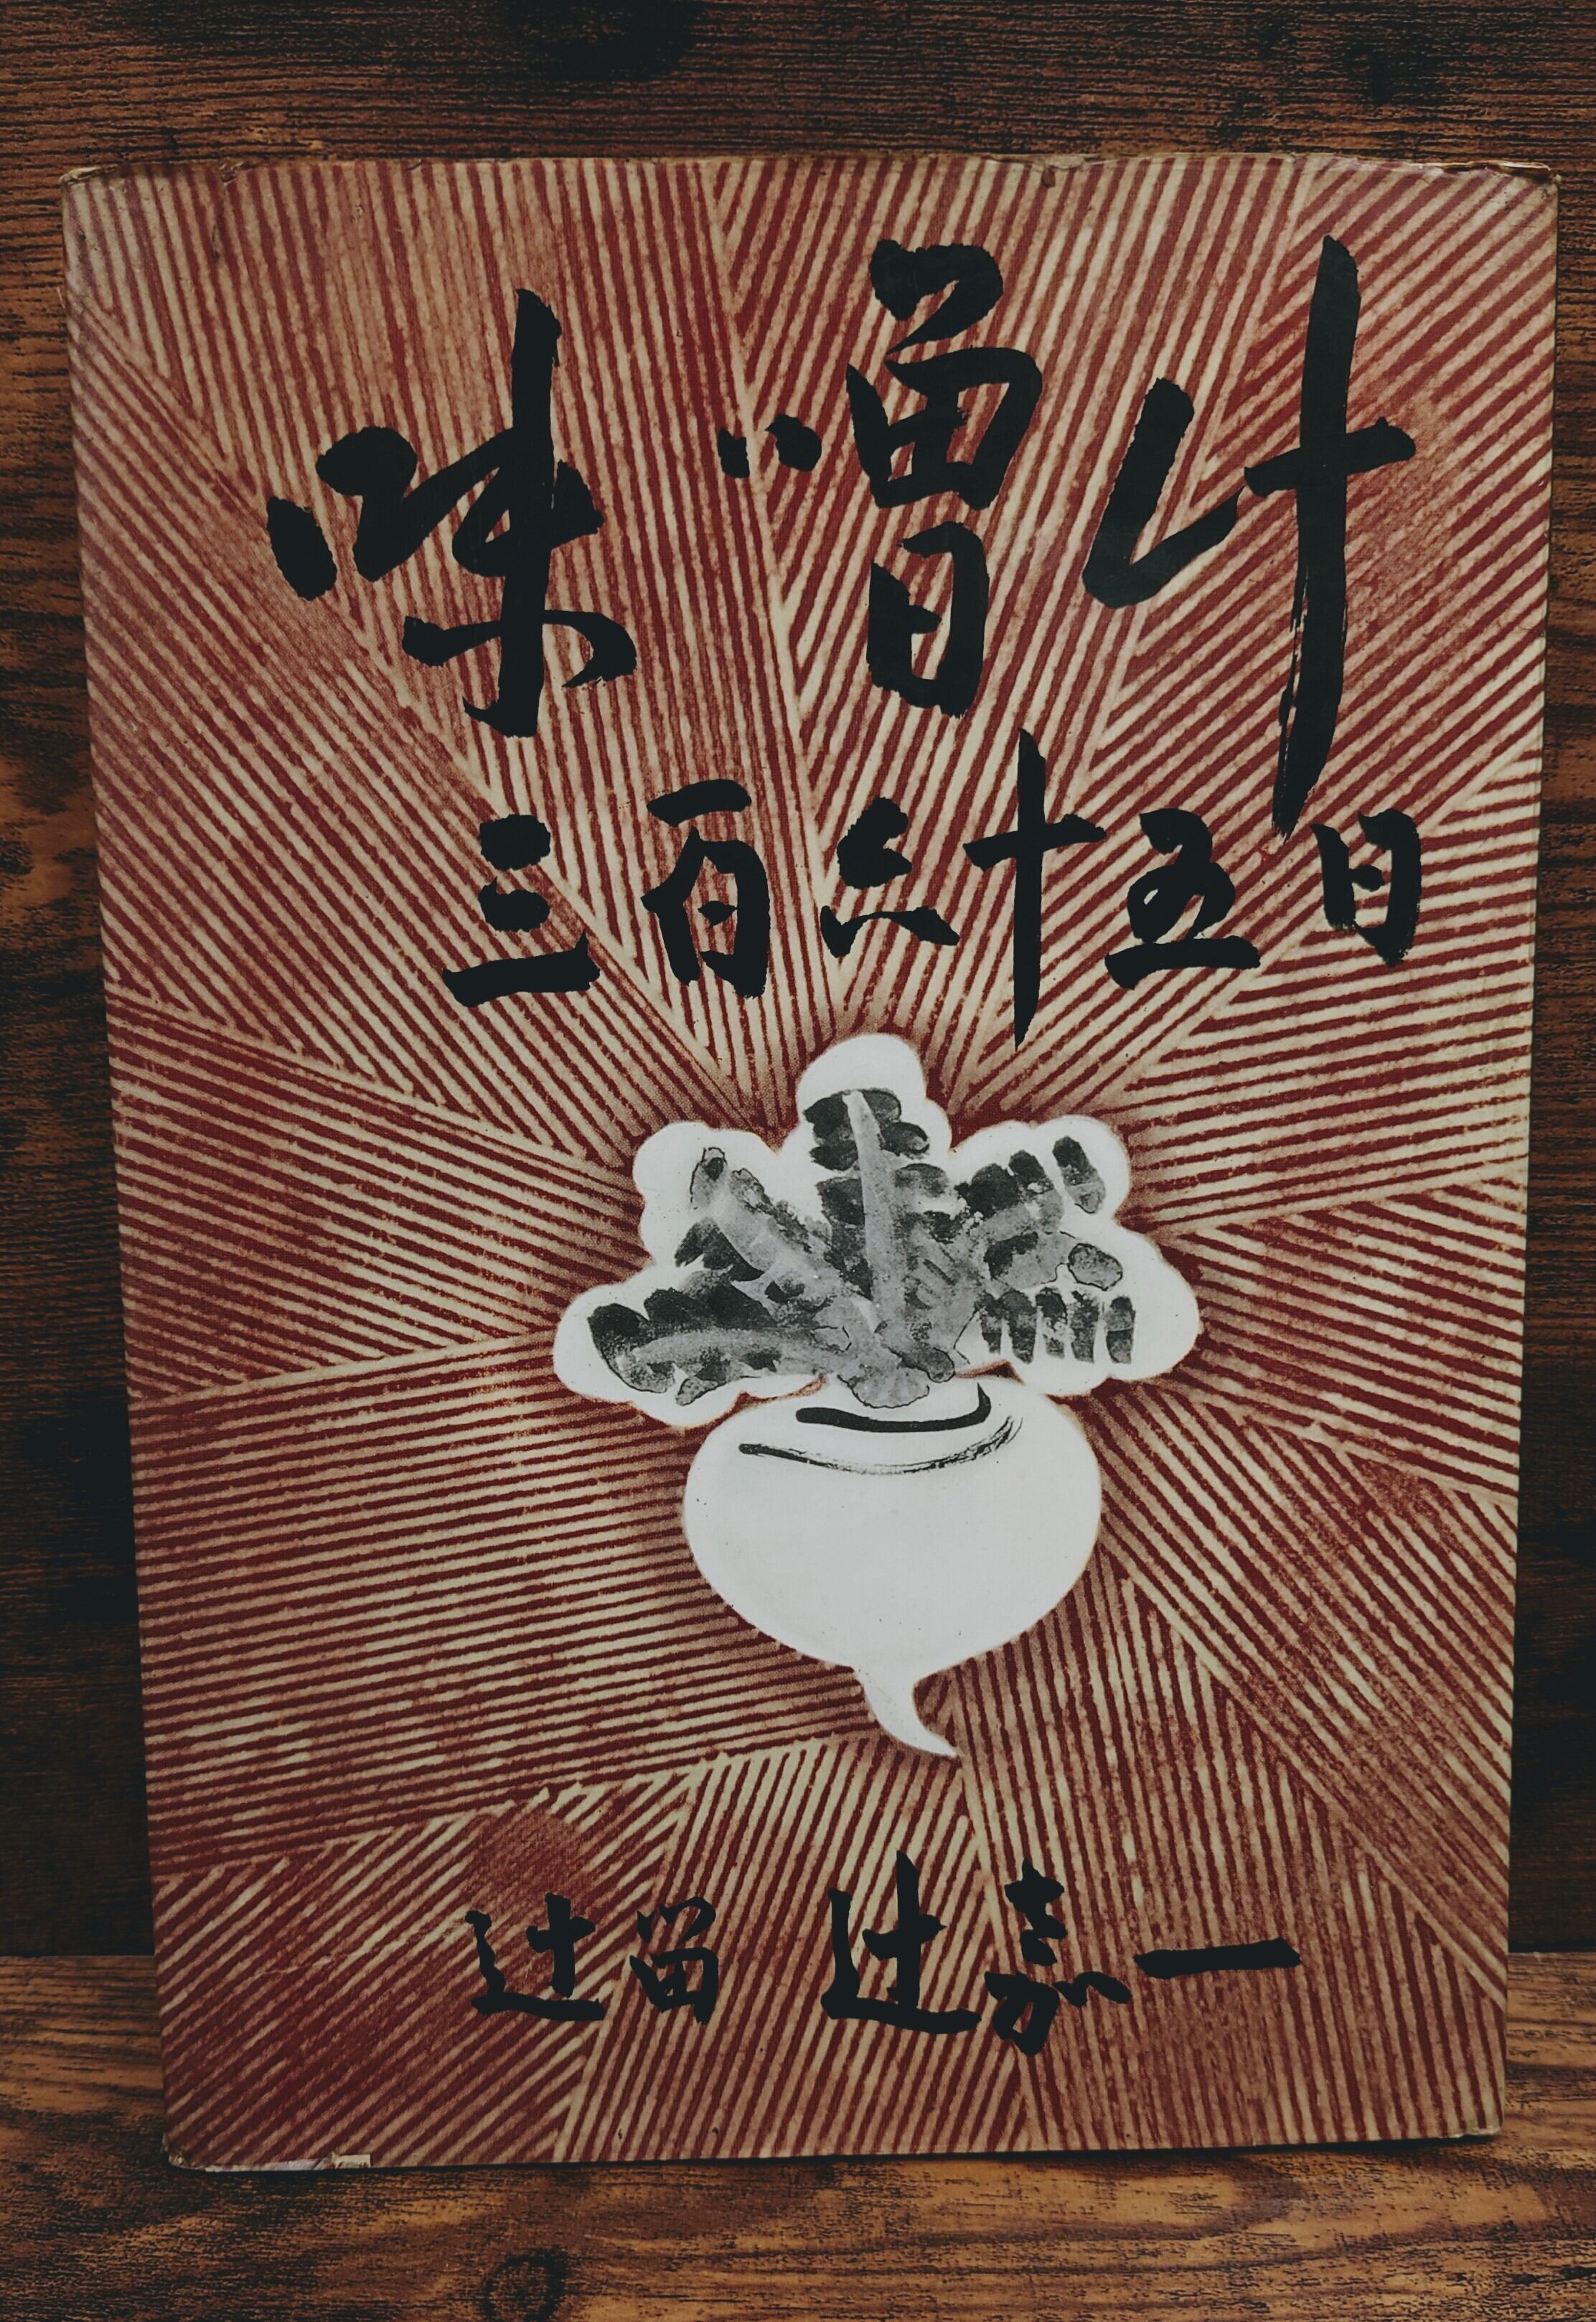 味噌汁
三百六十五日
辻留 辻嘉一